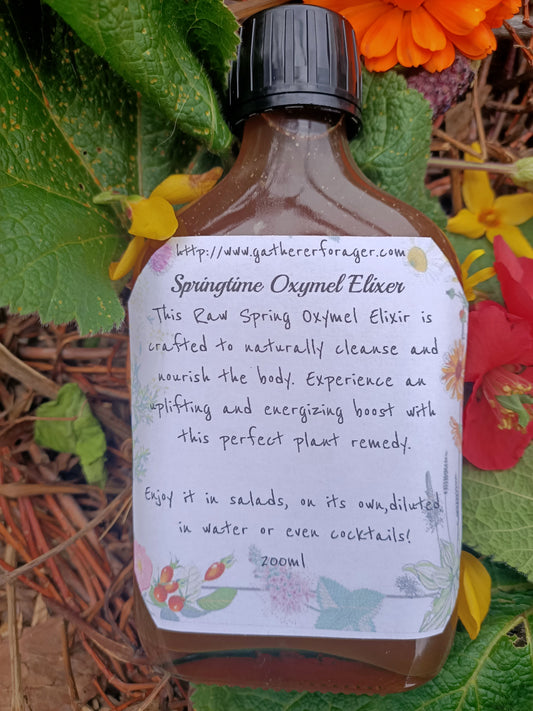 http://www.gathererforager.com
Springtime Oxymel Elixer
This Raw Spring Oxymel Elixir is
crafted to naturally cleanse and
nourish the body. Experience an
uplifting and energizing boost with
this perfect plant remedy.
Enjoy it in salads, on its own,diluted
in water or even cocktails!
200ml